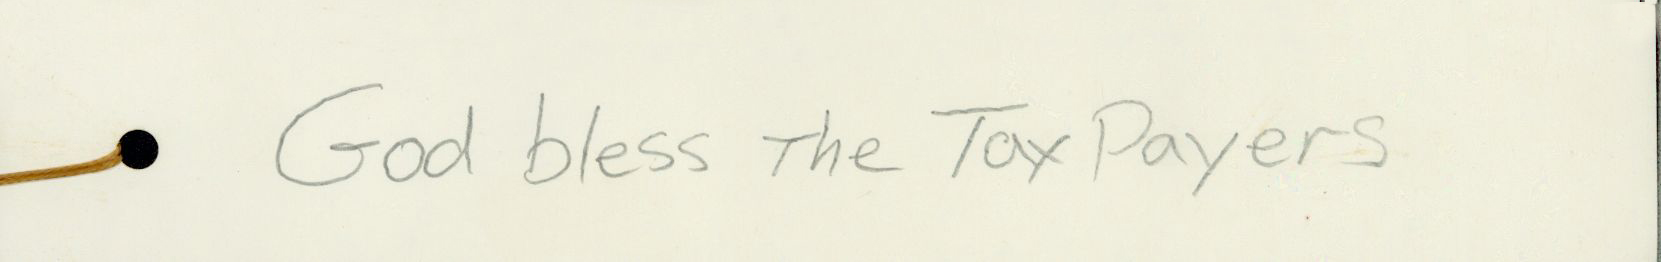 God bless the Tax Payers